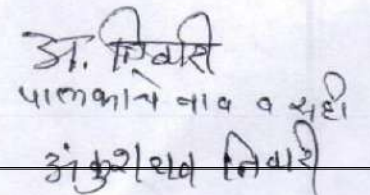 अ. तिवारी
पालकाचे नाव व सही
अंकुशराव तिवारी